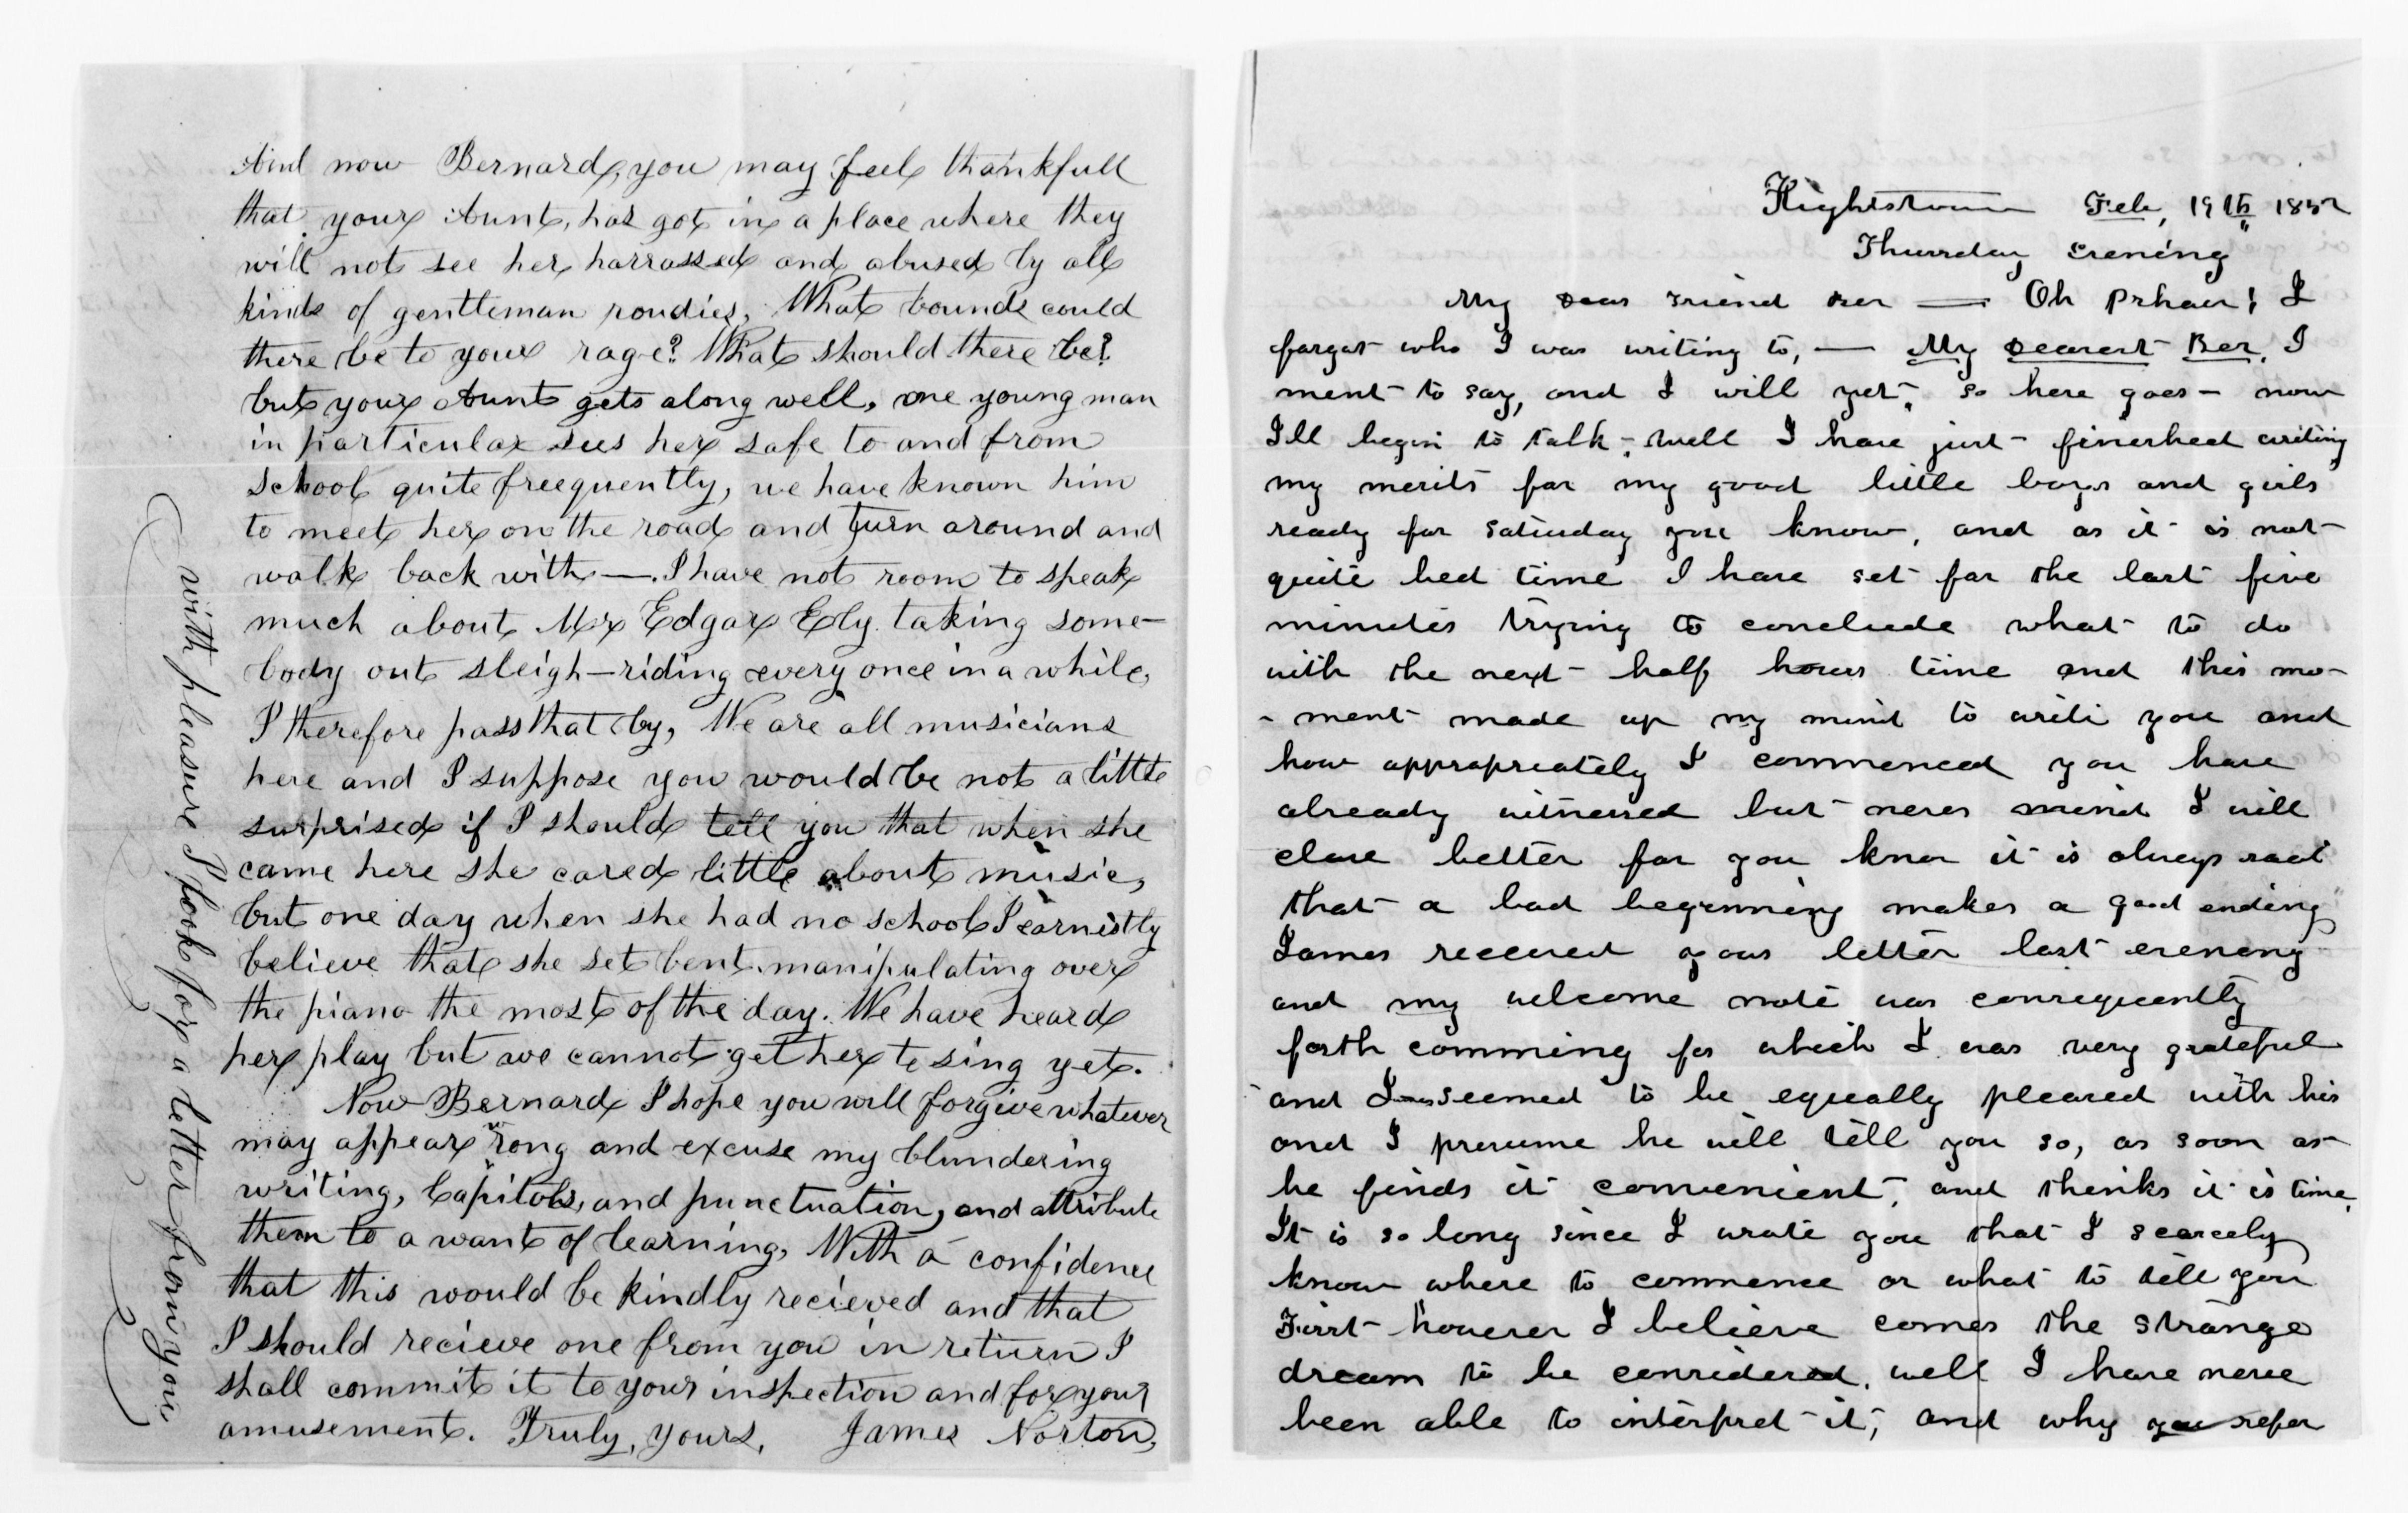 And now Bernard, you may feel thankfull
that your Aunt, has got in a place where they
will not see her harrassed and abused by all
kinds of gentleman roudies, What bounds could
there be to your rage? What should there be?
but your Aunt gets along well, one young man
in particular sees her safe to and from
school quite freequently, we have known him
to meet her on the road and turn around and
walk back with —. I have not room to speak
much about Mr Edgar Ely taking some-
body out sleigh-riding every once in a while,
I therefore pass that by, We are all musicians
here and I suppose you would be not a little
surprised if I should tell you that when she
came here she cared little about music,
but one day when she had no school I earnistly
believe that she set bent manipulating over
the piano the most of the day. We have heard
her play but we cannot get her to sing yet.
Now Bernard I hope you will forgive whatever
may appear wrong and excuse my blundering
writing, Capitols, and punctuation, and attribute
them to a want of learning, With a confidence
that this would be kindly recieved and that
I should recieve one from you in return I
shall commit it to your inspection and for your
amusement. Truly, yours, James Norton,
with pleasure I look for a letter from you
Hightstown Feb, 19th 1852
Thursday evening
My Dear Friend Ber — Oh Pshaw! I
forgot who I was writing to, — My Dearest Ber, I
ment to say, and I will yet, so here goes — now
I'll begin to talk, well I have just finershed writing
my merits for my good little boys and girls
ready for Saturday you know, and as it is not
quite bed time I have set for the last five
minutes trying to conclude what to do
with the next half hours time and this mo-
-ment made up my mind to write you and
how appropreately I commenced you have
already witnessed but never mind I will
close better for you know it is always said
that a bad beginning makes a good ending"
James received your letter last evening
and my welcome note was consequently
forth comming for which I was very grateful
and seemed to be equally pleased with his
and I presume he will tell you so, as soon as
he finds it convenient, and thinks it is time,
It is so long since I wrote you that I scarcely
know where to commence or what to tell you
First however I believe comes the strange
dream to be considered, well I have never
been able to interpret it, and why you refer